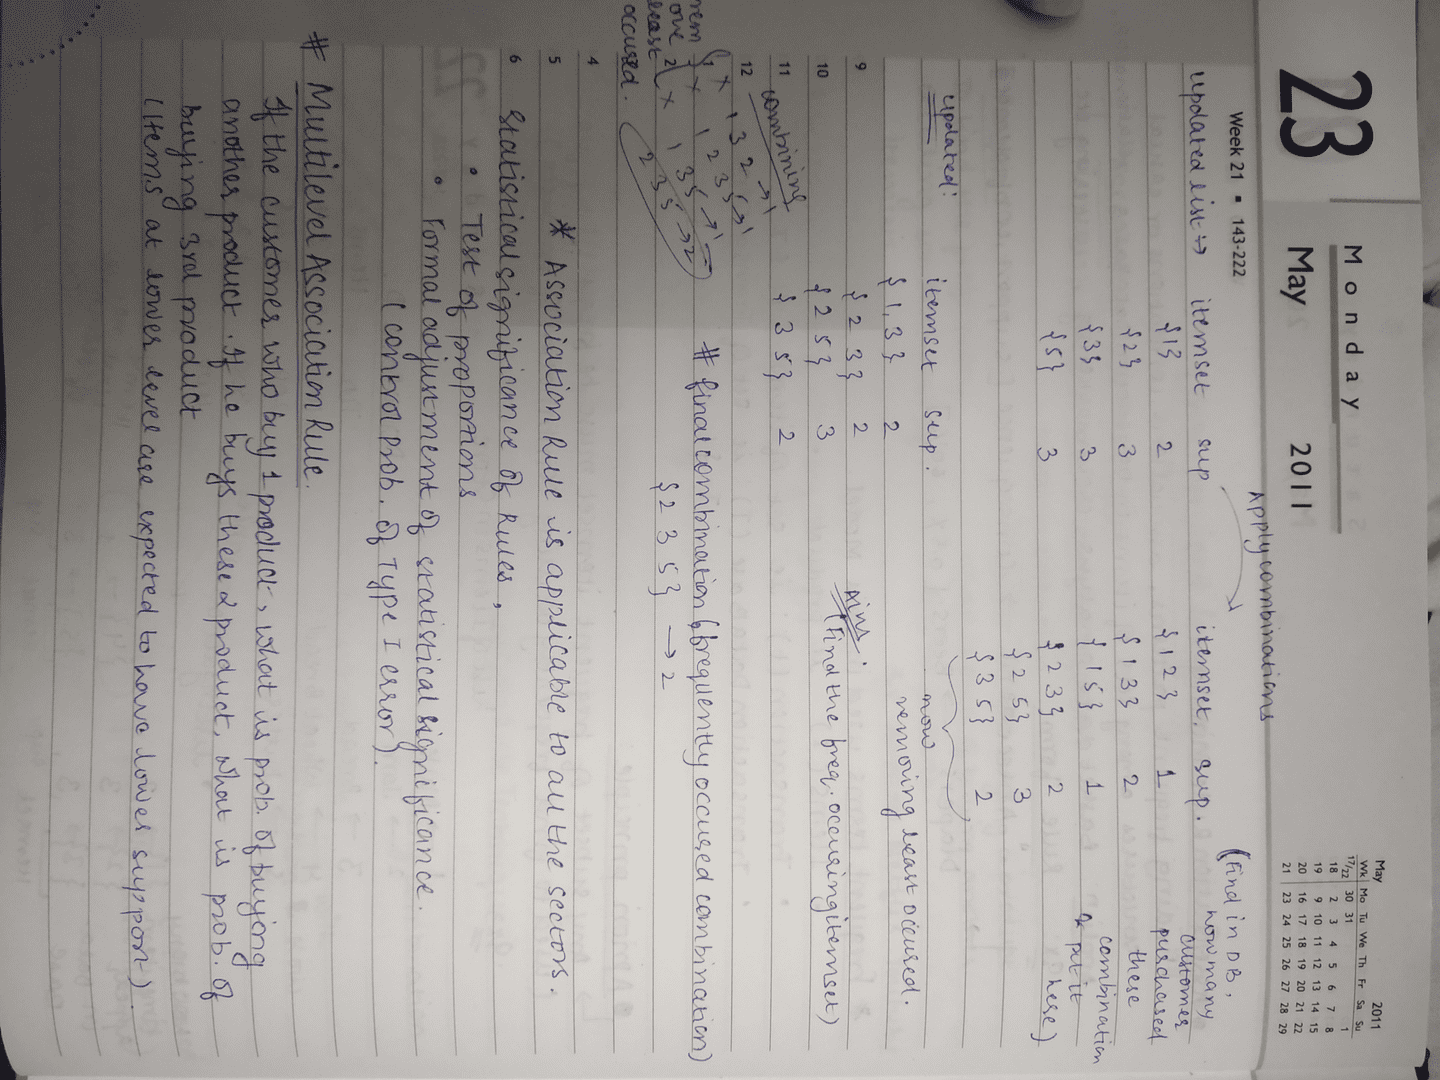 23
Monday
May 2011
Week 21 • 143-222
May 2011
Wk Mo Tu We Th Fr Sa Su
17/22 30 31 1
18 2 3 4 5 6 7 8
19 9 10 11 12 13 14 15
20 16 17 18 19 20 21 22
21 23 24 25 26 27 28 29
Apply combinations
updated list → itemset sup
{1} 2
{2} 3
{3} 3
{5} 3
itemset. sup.
{1 2} 1
{1 3} 2
{1 5} 1
{2 3} 2
{2 5} 3
{3 5} 2
(Find in DB,
how many
customer
purchased
these
combination
& put it
here)
now
removing least occured.
updated: itemset sup.
{1,3} 2
{2 3} 2
{2 5} 3
{3 5} 2
Aim:
(Find the freq. occuring itemset)
9
10
11
12
4
5
6
combining
1 3 2 → 1
1 2 3 5 → 1
1 3 5 → 1
2 3 5 → 2
rem
ove
least
occured.
# final combination (frequently occured combination)
{2 3 5} → 2
* Association Rule is applicable to all the sectors.
Statistical significance of Rules,
• Test of proportions
• Formal adjustment of statistical significance.
(control prob. of Type I error).
# Multilevel Association Rule.
If the customer who buy 1 product, what is prob. of buying
another product. If he buys these 2 product, what is prob. of
buying 3rd product
(Items at lower level are expected to have lower support).